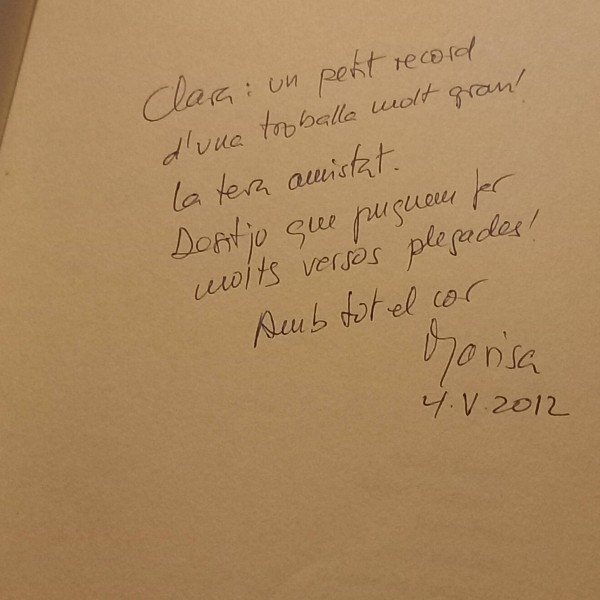 Clara: un petit record
d'una troballa molt gran!
la teva amistat.
Desitjo que puguem fer
molts versos plegades!
Amb tot el cor
Marisa
4.V.2012